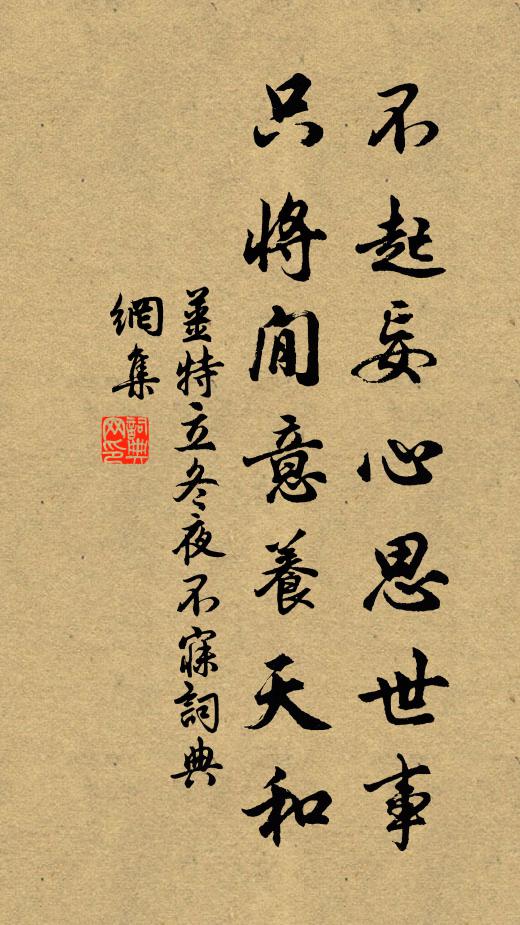 不起妄心思世事
只將閒意養天和
姜特立冬夜不寐詞典
網集
詞典網印